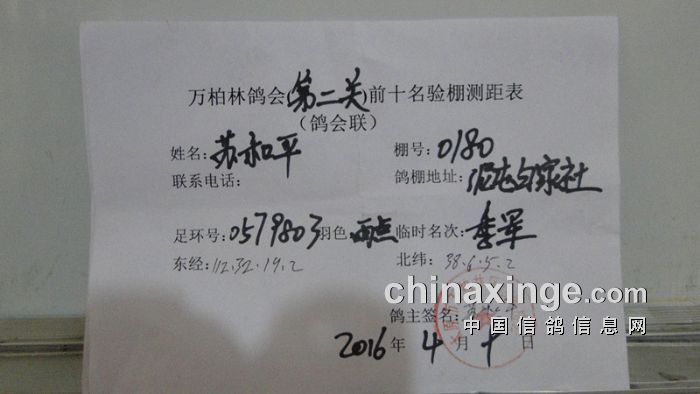 万柏林鸽会(第二关)前十名验棚测距表
(鸽会联)
姓名:苏和平 棚号:0180
联系电话: 鸽棚地址:白家社
足环号:0579803 羽色:雨点 临时名次:季军
东经:112.32.19.2 北纬:38.6.5.2
chinaxinge.com
鸽主签名:
中国信鸽信息网
2016年4月十日